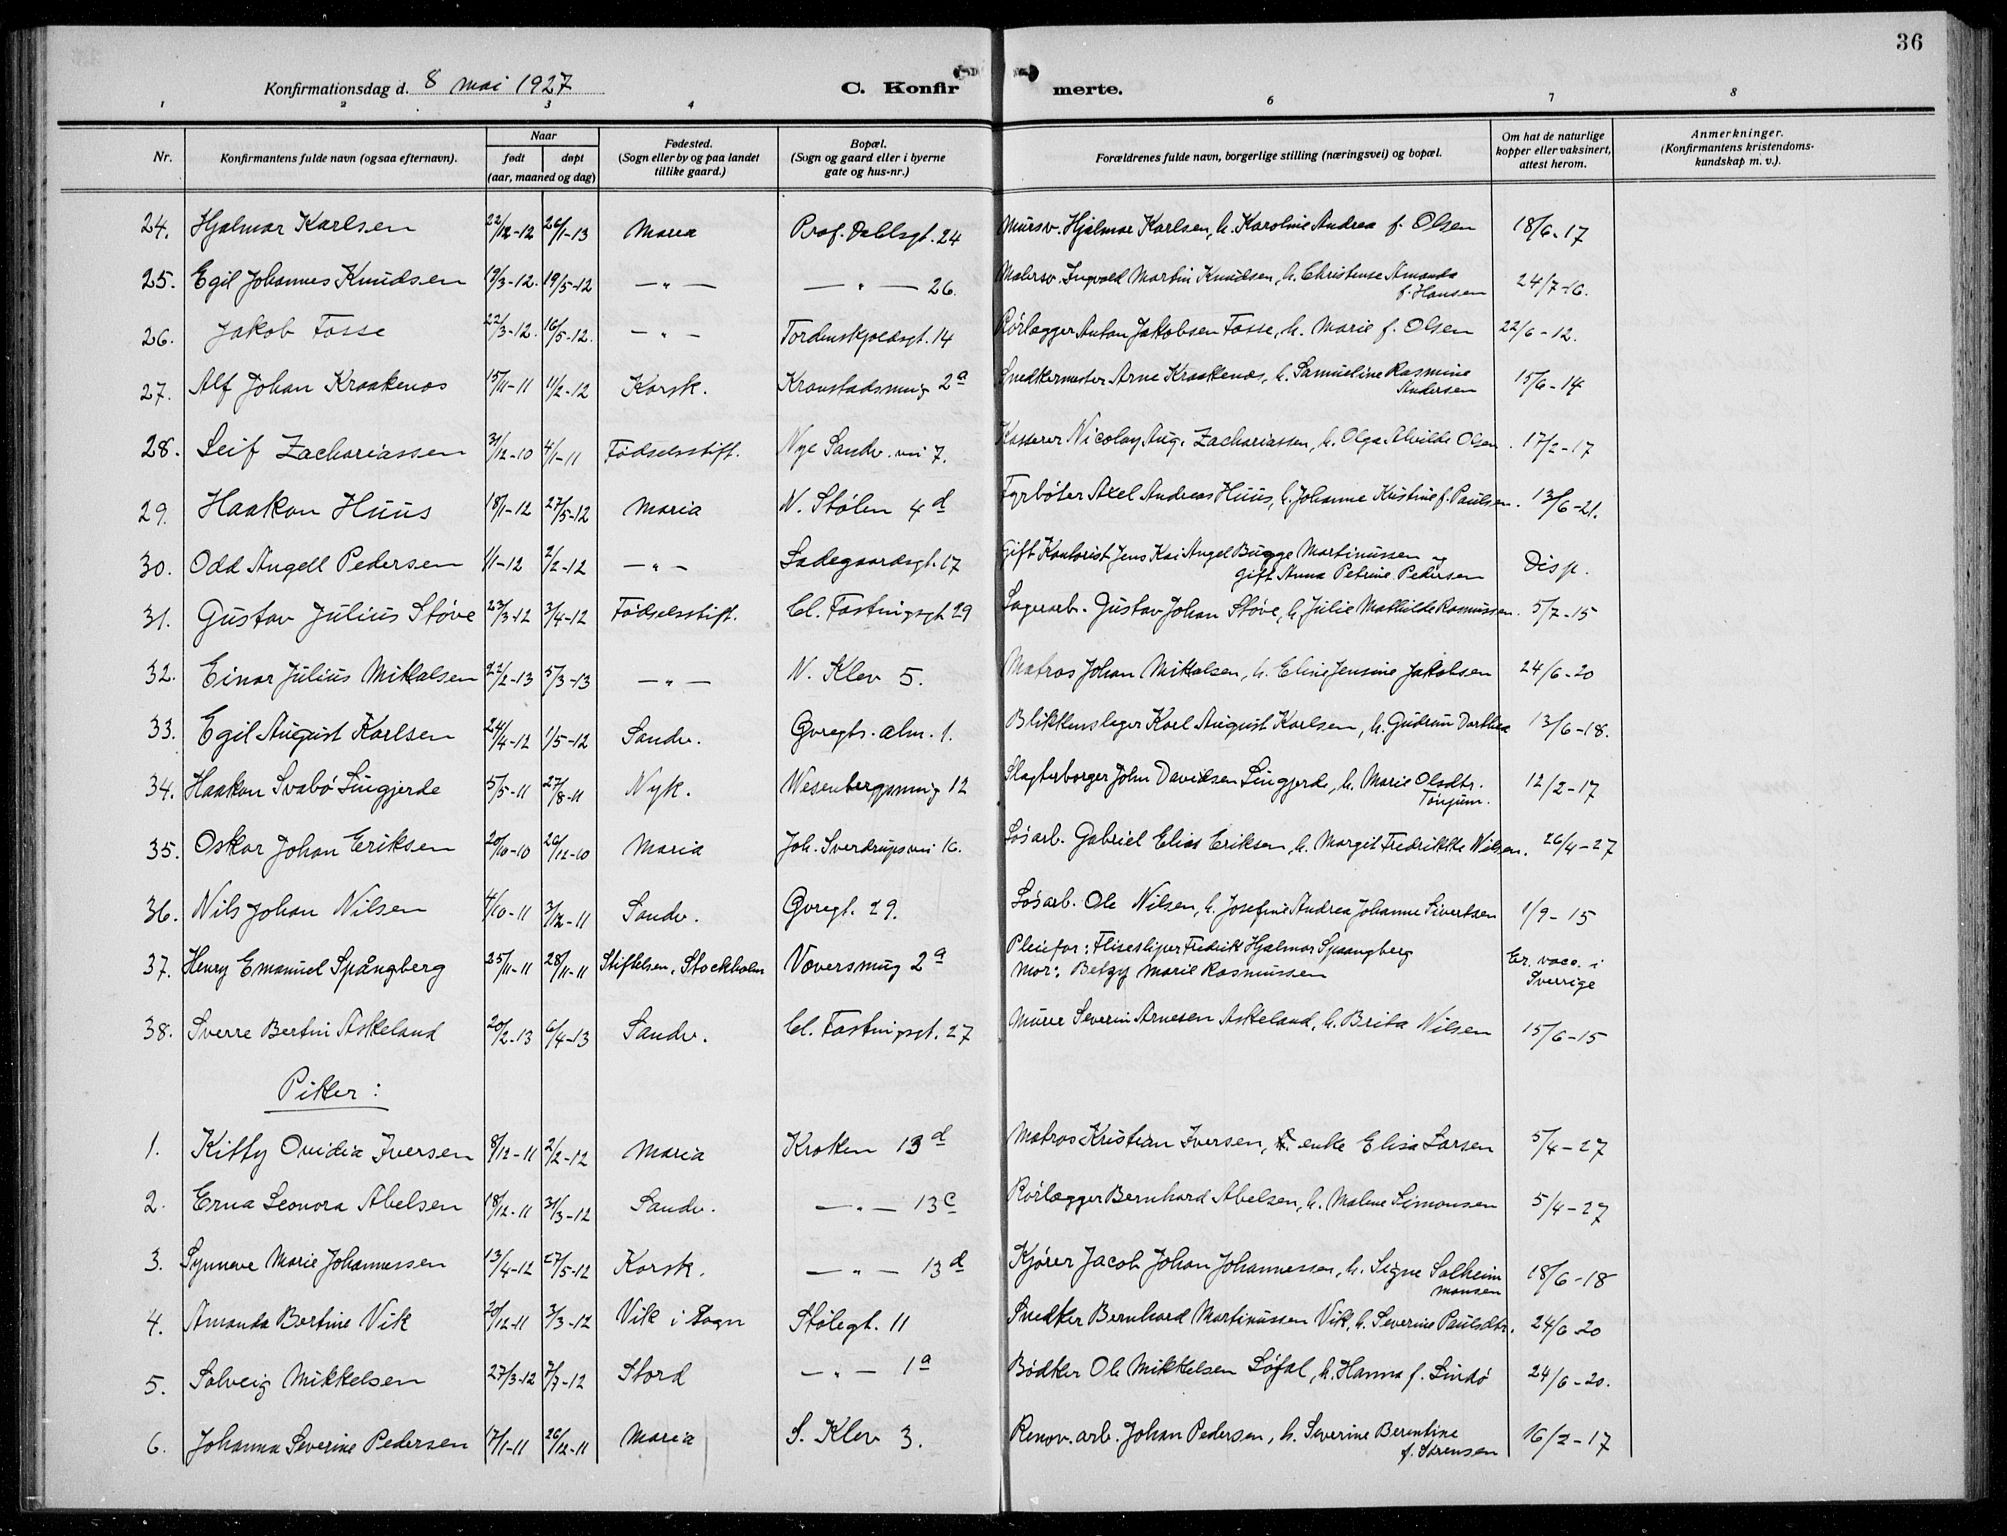 36
Konfirmationsdag d. 8 mai 1927
C. Konfirmerte.
1 2 3 4 6 7 8
Nr. | Konfirmantens fulde navn (ogsaa efternavn). | Naar født døpt (aar, maaned og dag) | Fødested. (Sogn eller by og paa landet tillike gaard.) | Bopæl. (Sogn og gaard eller i byerne gate og hus-nr.) | Forældrenes fulde navn, borgerlige stilling (næringsvei) og bopæl. | Om hat de naturlige kopper eller vaksinert, attest herom. | Anmerkninger. (Konfirmantens kristendoms-kundskap m. v.).
24. Hjalmar Karlsen 22/12-12 26/1-13 Maria Prof. Dahlsgt. 24 Mursv. Hjalmar Karlsen, h. Karoline Andrea f. Olsen 18/6-17
25. Egil Johannes Knudsen 19/3-12. 19/5-12 — " — — " — 26. Malersv. Ingvald Martin Knudsen, h. Christense Amanda f. Hansen 24/7-16.
26. Jakob Fosse 22/3-12. 16/5-12. — " — Tordenskjoldsgt. 14 Rørlægger Anton Jakobsen Fosse, h. Marie f. Olsen 22/6-12.
27. Alf Johan Kraakenes 15/11-11 11/2-12 Korsk. Kronstadsmug 2a Snedkermester Arne Kraakenes, h. Samueline Rasmine Andersen 15/6-14
28. Leif Zachariassen 31/12-10 4/1-11 Fødselsstift. Nye Sandv. vei 7. Kasserer Nicolay Aug. Zachariassen, h. Olga Alvilde Olsen. 17/2-17
29. Haakon Huus 18/1-12 27/5-12 Maria N. Stølen 4d Fyrbøter Axel Andreas Huus, h. Johanne Kristine f. Paulsen. 13/6-21.
30. Odd Angell Pedersen 1/1-12 2/2-12 — " — Ladegaardsgt. 17 Gift Kontorist Jens Kai Angel Bugge Martinussen og gift Anna Petrine Pedersen Disp.
31. Gustav Julius Støve 23/3-12 3/4-12 Fødselsstift. Cl. Fastingsgt 29 Lagerarb. Gustav Johan Støve, h. Julie Mathilde Rasmussen. 5/7-15
32. Einar Julius Mikkalsen 22/2-13 5/3-13 — " — N. Klev 5. Matros Johan Mikkalsen, h. Eline Jensine Jakobsen 24/6-20
33. Egil August Karlsen 24/4-12 1/5-12 Sandv. Gvregts. alm. 1. Blikkenslager Karl August Karlsen, h. Gudrun Dorthea 13/6-18.
34. Haakon Svabø Lingjerde 5/5-11 27/8-11 Nyk. Wesenbergsmug 12 Slagterborger John Davidsen Lingjerde, h. Marie Olsdtr. Tønjum. 12/2-17
35. Oskar Johan Eriksen 20/10-10 26/12-10 Maria Joh. Sverdrupsvei 16. Løsarb. Gabriel Elias Eriksen, h. Margit Fredrikke Nilsen. 26/4-27
36. Nils Johan Nilsen 4/10-11 3/12-11 Sandv. Gvregt. 29. Løsarb. Ole Nilsen, h. Josefine Andrea Johanne Sivertsen 1/9-15
37. Henry Emanuel Spångberg 25/11-11 28/11-11 Stiftelsen, Stockholm Væversmug 2a Pleiefor: Flisesliper Fredrik Hjalmar Spaangberg Mor: Betzy Marie Rasmussen Er. vacc. i Sverrige
38. Sverre Bertin Askeland 20/2-13 6/4-13 Sandv. Cl. Fastingsgt. 27 Murer Severin Arnesen Askeland, h. Brita Nilsen 15/6-15
Piker:
1. Kitty Ovidia Iversen 8/12-11 2/2-12 Maria Kroken 13d Matros Kristian Iversen, enke Elisa Larsen 5/4-27
2. Erna Leonora Abelsen 18/12-11 31/3-12 Sandv. — " — 13c Rørlægger Bernhard Abelsen, h. Malene Simonsen 5/4-27
3. Synneve Marie Johannessen 13/4-12 27/5-12 Korsk. — " — 13d Kjører Jacob Johan Johannessen, h. Signe Solheim Monsen 18/6-18
4. Amanda Bertine Vik 20/12-11 3/3-12 Vik i Sogn Stølegt. 11 Snedker Bernhard Martinussen Vik, h. Severine Paulsdtr. 24/6-20
5. Solveig Mikkelsen 27/3-12 7/7-12 Stord — " — 1a Bødker Ole Mikkelsen Løfal, h. Hanna f. Lindø 24/6-20.
6. Johanna Severine Pedersen 17/1-11 26/12-11 Maria S. Klev 3. Renov. arb. Johan Pedersen, h. Severine Berentine f. Sørensen 16/2-17